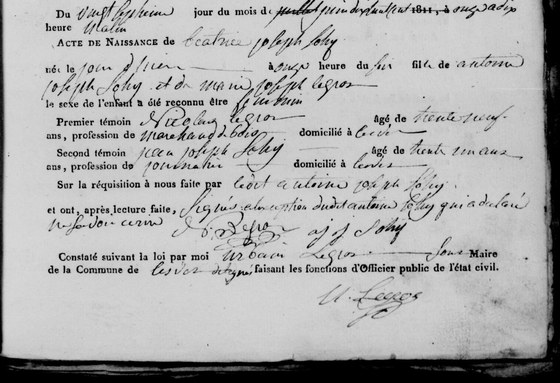 Du vingt septieme jour du mois de 1811, à onze
heure Matin
ACTE DE NAISSANCE de beatrice joseph Sohy
née le jour d'hier à onze heure du fille de antoine
joseph Sohy et de marie joseph Legros
le sexe de l'enfant a été reconnu être feminin
Premier témoin Nicolas Legros âgé de trente neuf
ans, profession de marchand de bois domicilié à
Second témoin jean joseph Sohy âgé de trente un ans
ans, profession de journalier domicilié à
Sur la réquisition à nous faite par ledit antoine joseph Sohy
et ont, après lecture faite, Signés a l'exception dudit antoine Sohy qui a declaré
ne savoir ecrire N: Legros J J Sohy
Constaté suivant la loi par moi Urbain Legros Maire
de la Commune de faisant les fonctions d'Officier public de l'état civil.
U. Legros